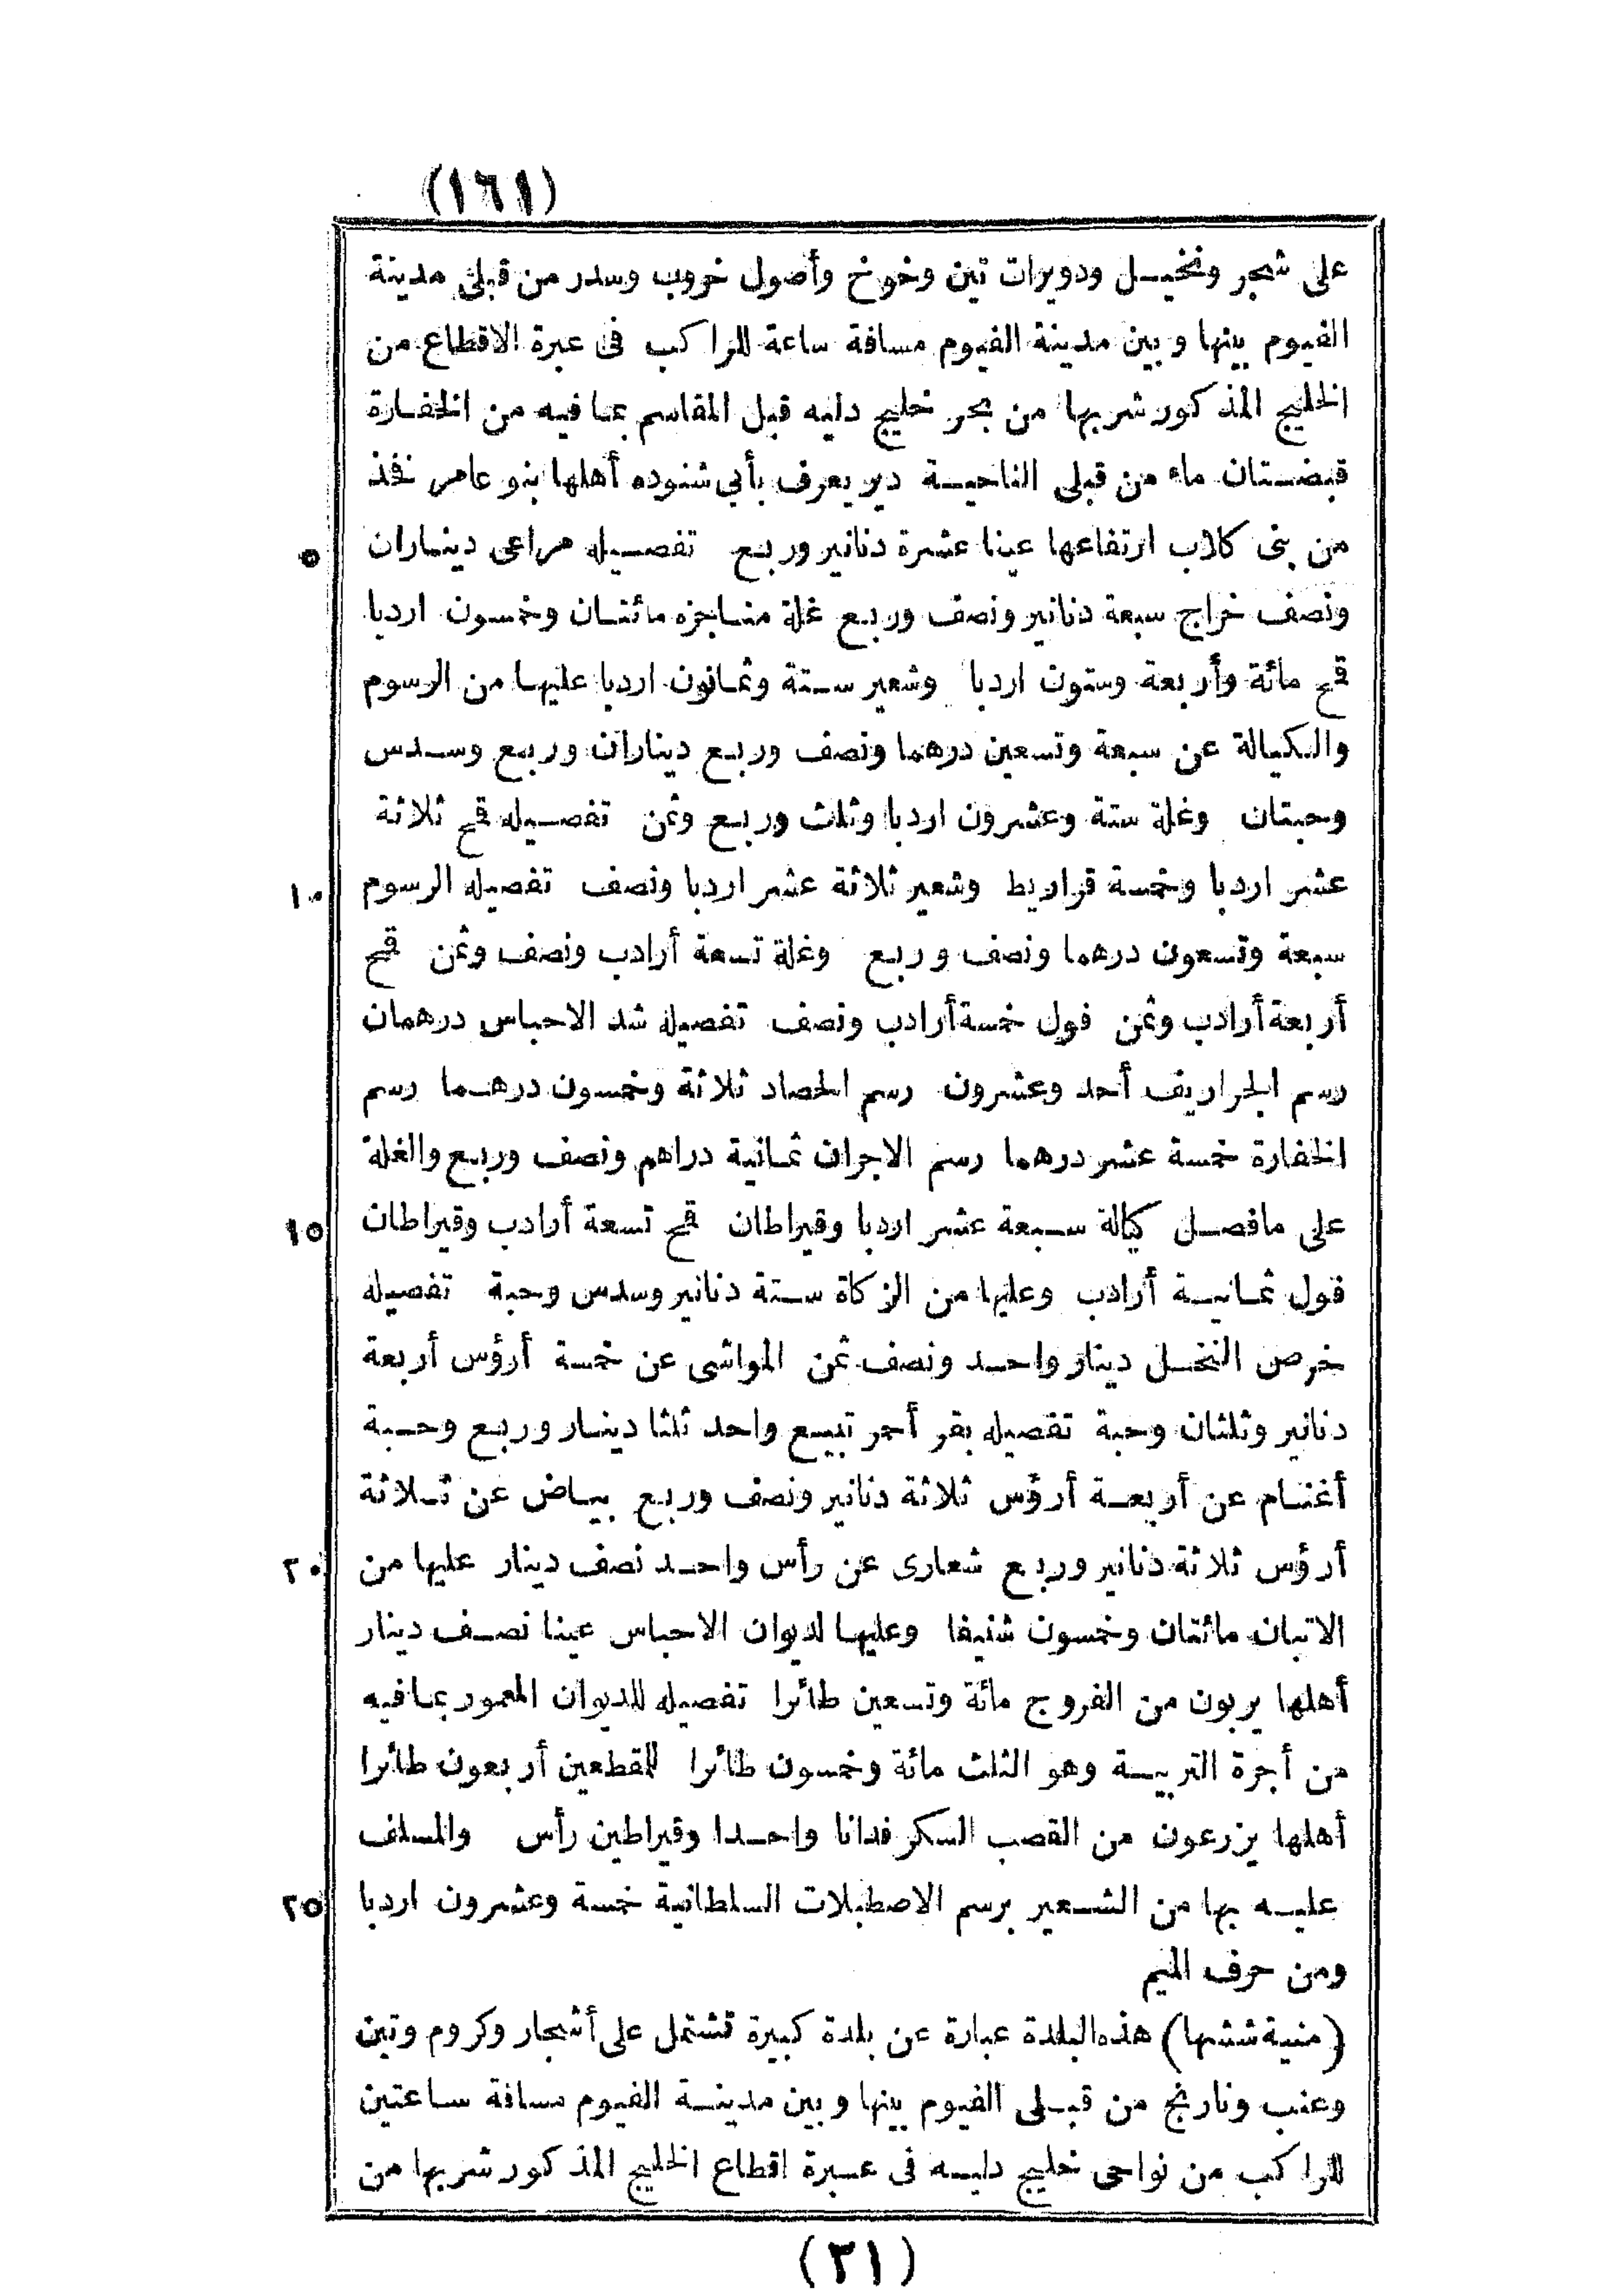 (١٦١)
على شجر ونخيل ودويرات تين وخوخ وأصول خروب وسدر من قبلى مدينة
الفيوم بينها وبين مدينة الفيوم مسافة ساعة للراكب فى عبرة الاقطاع من
الخليج المذكور شربها من بحر خليج دليه قبل المقاسم بما فيه من الخفارة
قبضتان ماء من قبلى الناحية دير يعرف بأبى شنوده أهلها بنو عامر فخذ
من بنى كلاب ارتفاعها عينا عشرة دنانير وربع تفصيله مراعى ديناران
٥
ونصف خراج سبعة دنانير ونصف وربع غلة مناجزه مائتان وخمسون اردبا
قمح مائة وأربعة وستون اردبا وشعير ستة وثمانون اردبا عليها من الرسوم
والكيالة عن سبعة وتسعين درهما ونصف وربع ديناران وربع وسدس
وحبتان وغلة ستة وعشرون اردبا وثلث وربع وثمن تفصيله قمح ثلاثة
عشر اردبا وخمسة قراريط وشعير ثلاثة عشر اردبا ونصف تفصيله الرسوم
١٠
سبعة وتسعون درهما ونصف وربع وغلة تسعة أرادب ونصف وثمن قمح
أربعة أرادب وثمن فول خمسة أرادب ونصف تفصيله شد الاحباس درهمان
رسم الجراريف أحد وعشرون رسم الحصاد ثلاثة وخمسون درهما رسم
الخفارة خمسة عشر درهما رسم الاجران ثمانية دراهم ونصف وربع والغلة
على مافصل كيالة سبعة عشر اردبا وقيراطان قمح تسعة أرادب وقيراطان
١٥
فول ثمانية أرادب وعليها من الزكاة ستة دنانير وسدس وحبة تفصيله
خرص النخل دينار واحد ونصف ثمن المواشى عن خمسة أرؤس أربعة
دنانير وثلثان وحبة تفصيله بقر أحمر تبيع واحد ثلثا دينار وربع وحبة
أغنام عن أربعة أرؤس ثلاثة دنانير ونصف وربع بياض عن ثلاثة
أرؤس ثلاثة دنانير وربع شعارى عن رأس واحد نصف دينار عليها من
٢٠
الاتبان مائتان وخمسون شنيفا وعليها لديوان الاحباس عينا نصف دينار
أهلها يربون من الفروج مائة وتسعين طائرا تفصيله للديوان المعمور بما فيه
من أجرة التربية وهو الثلث مائة وخمسون طائرا للمقطعين أربعون طائرا
أهلها يزرعون من القصب السكر فدانا واحدا وقيراطين رأس والمسلف
عليه بها من الشعير برسم الاصطبلات السلطانية خمسة وعشرون اردبا
٢٥
ومن حرف الميم
(منية ششها) هذه البلدة عبارة عن بلدة كبيرة تشتمل على أشجار وكروم وتين
وعنب ونارنج من قبلى الفيوم بينها وبين مدينة الفيوم مسافة ساعتين
للراكب من نواحى خليج دليه فى عبرة اقطاع الخليج المذكور شربها من
(٢١)